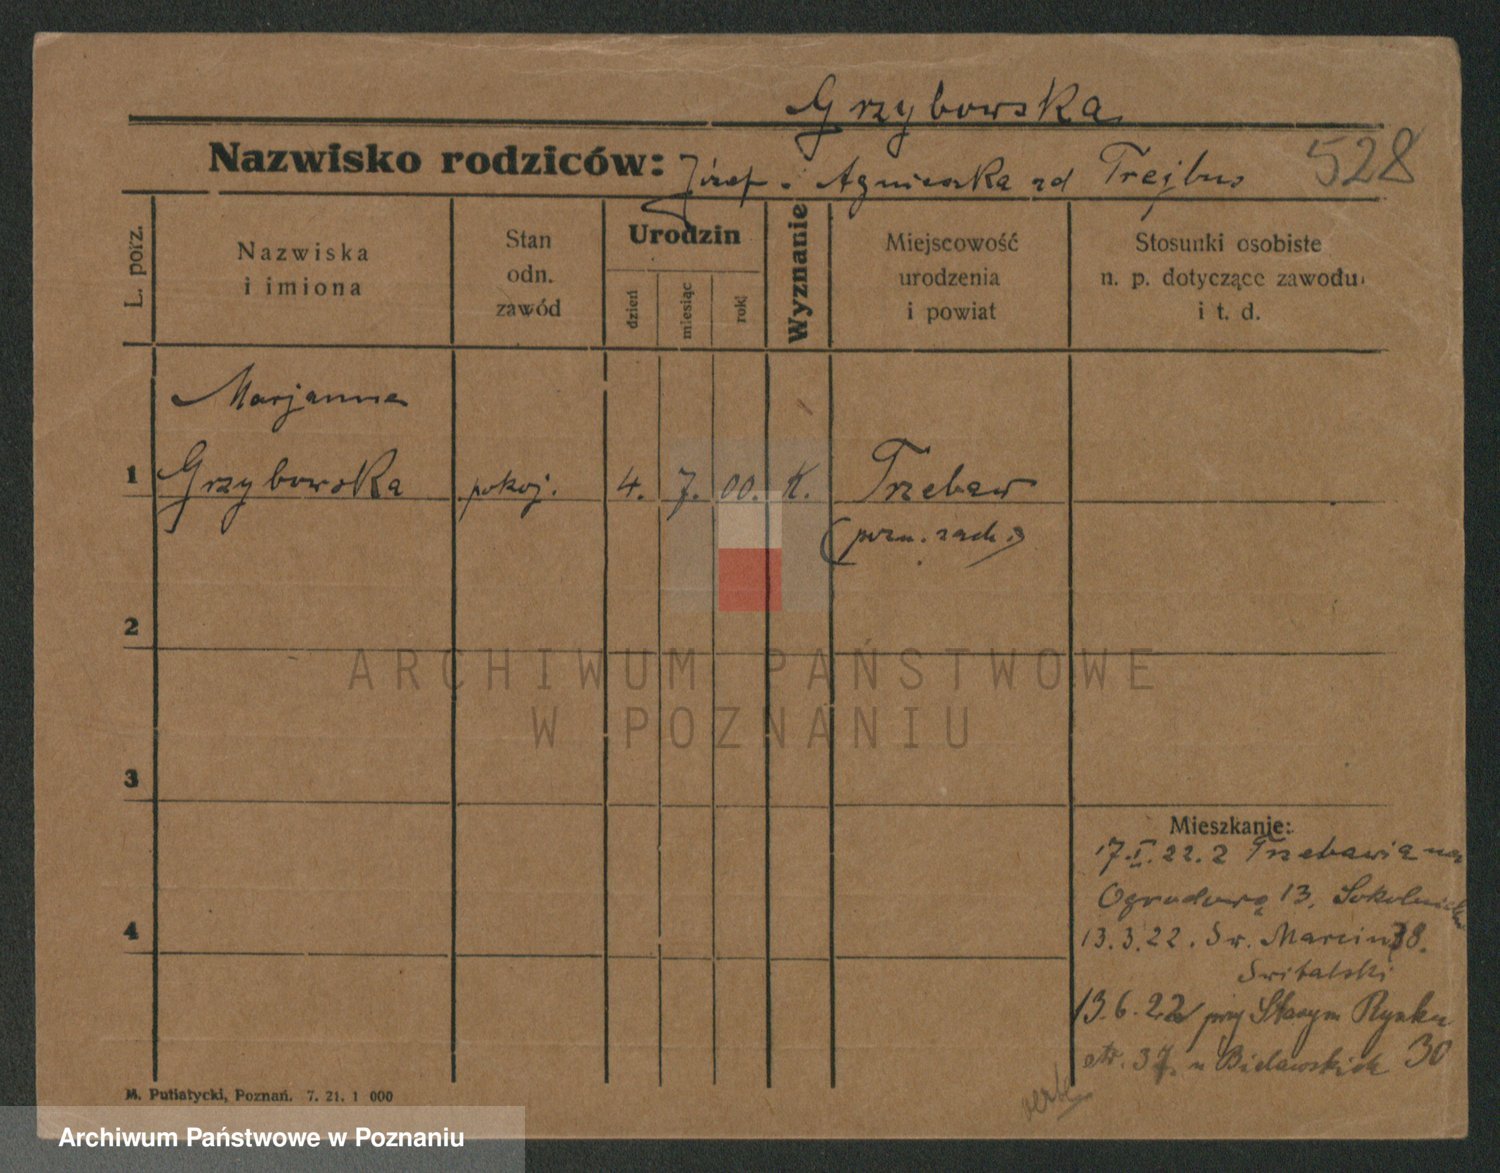 Grzybowska
Nazwisko rodziców: Józef . Agnieszka zd Trejbus 528
L. porz.
Nazwiska
i imiona
Stan
odn.
zawód
Urodzin
dzień
miesiąc
rok
Wyznanie
Miejscowość
urodzenia
i powiat
Stosunki osobiste
n. p. dotyczące zawodu
i t. d.
Marjanna
1 Grzybowska pokoj. 4. 7. 00. K. Trzebaw
(pozn. zach.)
2
3
4
Mieszkanie:
17.I.22. z Trzebawia na
Ogrodową 13. Sokolnicki
13.3.22. Św. Marcin 38.
Świtalski
13.6.22 przy Starym Rynku
str. 37. u Bielawskich 30
verte
M. Putiatycki, Poznań. 7. 21. 1 000
ARCHIWUM PAŃSTWOWE
W POZNANIU
Archiwum Państwowe w Poznaniu